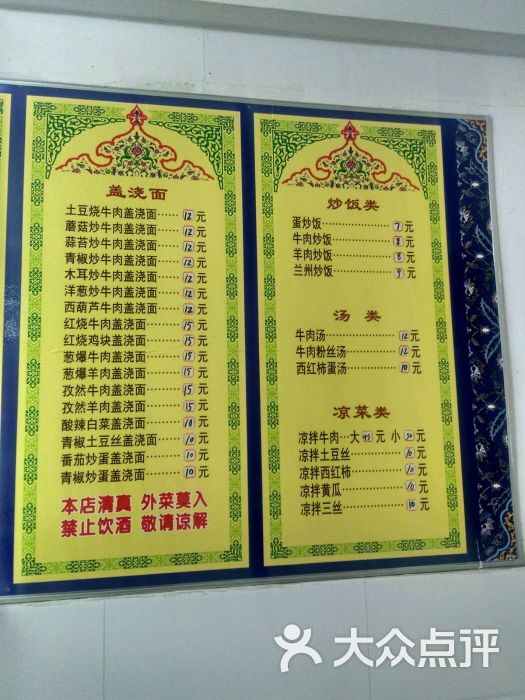 盖浇面
土豆烧牛肉盖浇面……12元
蘑菇炒牛肉盖浇面……12元
蒜苔炒牛肉盖浇面……12元
青椒炒牛肉盖浇面……12元
木耳炒牛肉盖浇面……12元
洋葱炒牛肉盖浇面……12元
西葫芦牛肉盖浇面……12元
红烧牛肉盖浇面……15元
红烧鸡块盖浇面……15元
葱爆牛肉盖浇面……15元
葱爆羊肉盖浇面……15元
孜然牛肉盖浇面……15元
孜然羊肉盖浇面……15元
酸辣白菜盖浇面……10元
青椒土豆丝盖浇面……10元
番茄炒蛋盖浇面……10元
青椒炒蛋盖浇面……10元
本店清真 外菜莫入
禁止饮酒 敬请谅解
炒饭类
蛋炒饭……7元
牛肉炒饭……8元
羊肉炒饭……8元
兰州炒饭……9元
汤 类
牛肉汤……12元
牛肉粉丝汤……12元
西红柿蛋汤……10元
凉菜类
凉拌牛肉…大45元 小30元
凉拌土豆丝……10元
凉拌西红柿……10元
凉拌黄瓜……10元
凉拌三丝……10元
大众点评